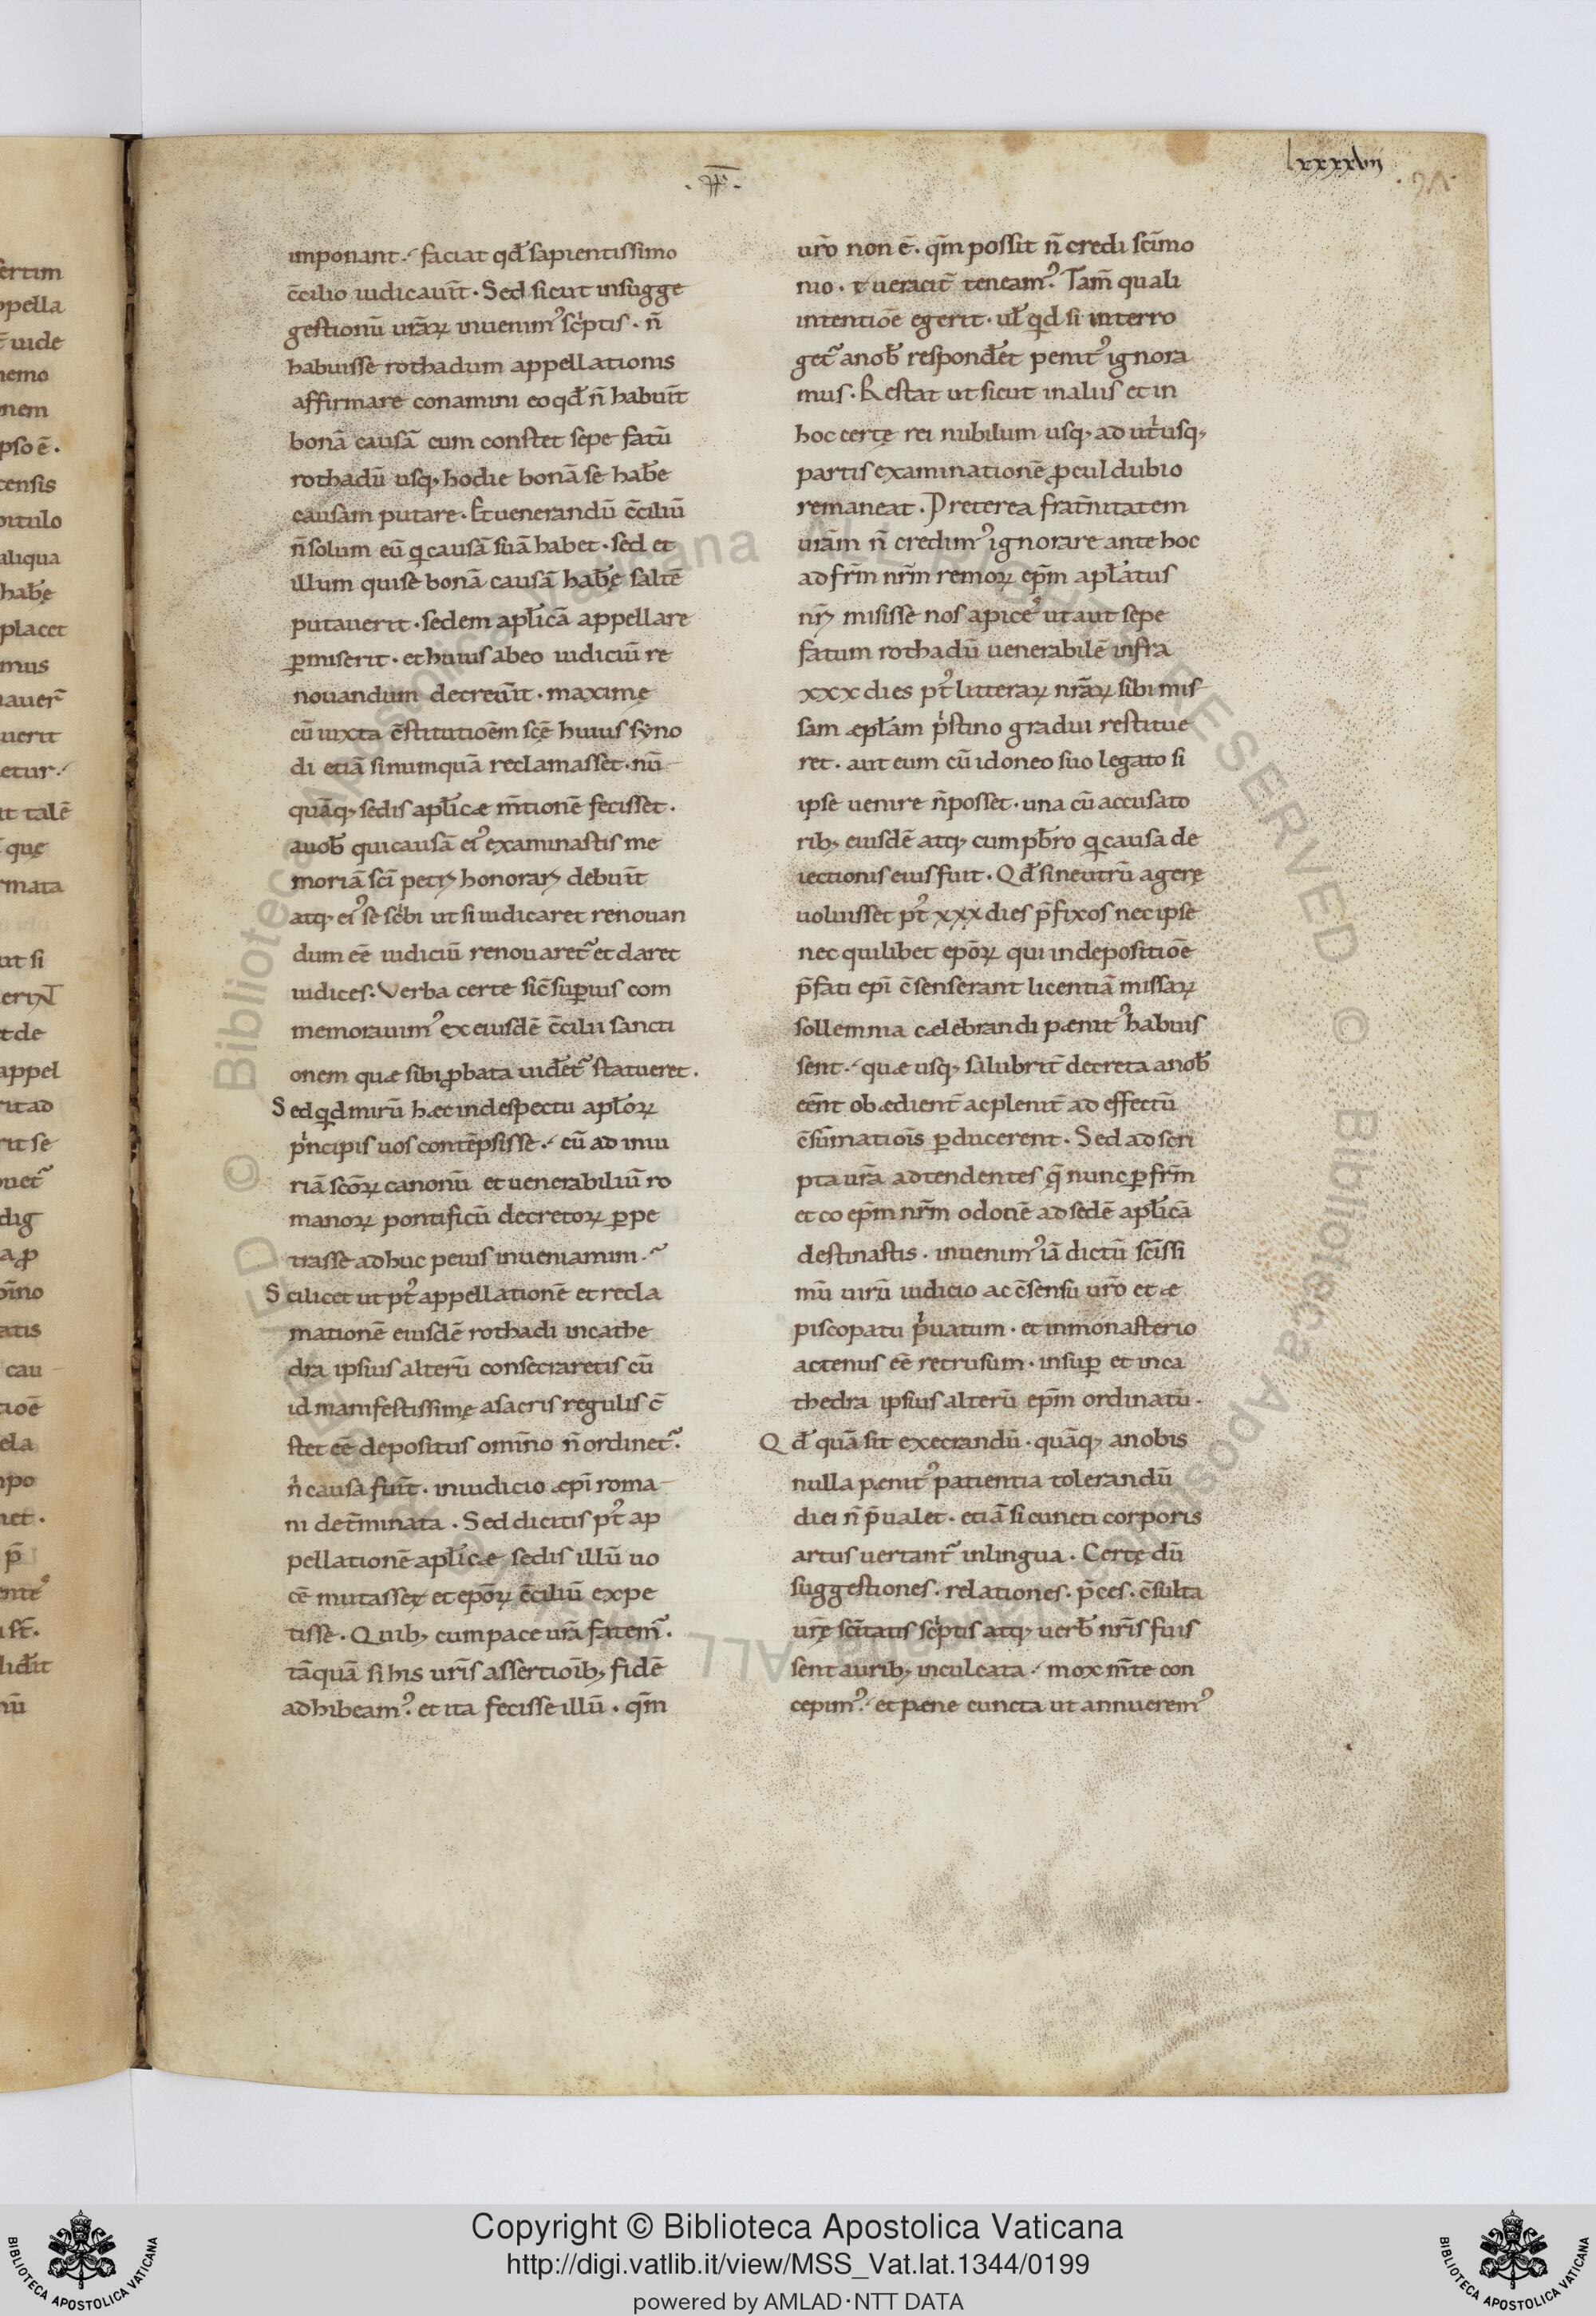 lxxxxvii
imponant. faciat qđ sapientissimo
c̄cilio iudicauīt · Sed sicut insugge
gestionū urāꝝ inuenim᾽ sc̓ptis · n̄
habuisse rothadum appellationis
affirmare conamini eo qđ n̄ habuīt
bonā causā cum constet sepe fatū
rothadū usq; hodie bonā se hab̄e
causam putare · Et uenerandū c̄ciliū
n̄ solum eū q̓ causā suā habet · sed et
illum qui se bonā causā hab̄ę saltē
putauerit · sedem apl̄icā appellare
ꝑmiserit · et huius abeo iudiciū re
nouandum decreuīt · maximę
cū iuxta c̄stitutioēm scę̄ huius syno
di etiā si numquā reclamasset · nū
quāq; sedis apl̄icæ m̄tionē fecisset ·
auob̄ qui causā ei᾽ examinastis me
moriā sci̅ petri honorari debuīt
atq; ei᾽ se sc̓bi ut si iudicaret renouan
dum eē iudiciū renouaret᷑ et daret
iudices. Verba certe sic̄ suꝑius com
memorauim᾽ ex eiusdē c̄cilii sancti
onem quæ sibi ꝓbata uidēt᷑ statueret.
Sed qd mirū hæc indespectu apl̄oꝝ
p̓ncipis uos contēpsisse. cū ad iniu
riā scōꝝ canonū et uenerabiliū ro
manoꝝ pontificū decretoꝝ ꝑpe
trasse adhuc peius inueniamini.
Scilicet ut pt᾽ appellationē et recla
mationē eiusdē rothadi incathe
dra ipsius alterū consecraretis cū
id manifestissimę asacris regulis c̄
stet eē depositus omīno n̄ ordinet᷑.
n̓ causa fuīt · iniudicio æpi̅ roma
ni det̄minata · Sed dicitis pt᾽ ap
pellationē apl̄icæ sedis illū uo
cē mutasse et epōꝝ c̄ciliū expe
tisse · Quib; cum pace urā fatem᷑.
tāquā si his urīs assertioīb; fidē
adhibeam᾽. et ita fecisse illū · qm̄
urō non ē · qm̄ possit n̄ credi scīmo
nio · ueracit̄ teneam᾽. Tam̄ quali
intentioē egerit · ul̄ qd si interro
get᷑ anob̄ respondēt penit᾽ ignora
mus · Restat ut sicut inaliis et in
hoc certę rei nubilum usq; ad ut̓usq;
partis examinationē ꝓcul dubio
remaneat · Preterea frat̄nitatem
urām n̄ credim᾽ ignorare ante hoc
ad frm̄ nrm̄ remoꝝ epm̄ apl̄atus
nri̅ misisse nos apice᾽ ut aut sepe
fatum rothadū uenerabilē infra
xxx dies pt᾽ litteraꝝ nrāꝝ sibi mis
sam æpl̄am p̓stino gradui restitue
ret · aut eum cū idoneo suo legato si
ipse uenire n̄ posset · una cū accusato
rib; eiusdē atq; cum pb̄ro q̓ causa de
iectionis eius fuit · Qđ si neutrū agerę
uoluisset pt᾽ xxx dies p̄fixos nec ipse
nec quilibet epōꝝ qui indepositioē
p̄fati epi̅ c̄senserant licentiā missaꝝ
sollemnia cælebrandi pænit᾽ habuis
sent. quæ usq; salubrit̄ decreta anob̄
eēnt obædient̄ ac plenit̄ ad effectū
c̄sūmatioīs ꝑducerent · Sed ad scri
pta urā adtendentes q̄ nunc ꝑ frm̄
et co epm̄ nrm̄ odonē ad sedē apl̄icā
destinastis · inuenim᾽ iā dictū scīssi
mū uirū iudicio ac c̄sensu urō et æ
piscopatu p̓uatum · et inmonasterio
actenus eē retrusum · insuꝑ et inca
thedra ipsius alterū epm̄ ordinatū ·
Qđ quā sit execrandū · quāq; anobis
nulla pænit᾽ patientia tolerandū
dici n̄ p̄ualet · etiā si cuncti corporis
artus uertant᷑ inlingua · Certę dū
suggestiones · relationes · p̄ces · c̄sulta
urę̄ scītatis sc̓ptis atq; uerb̄ nrīs fuis
sent aurib; inculcata. mox m̄te con
cepim᾽. et pæne cuncta ut annuerem᾽
Copyright © Biblioteca Apostolica Vaticana
http://digi.vatlib.it/view/MSS_Vat.lat.1344/0199
powered by AMLAD·NTT DATA